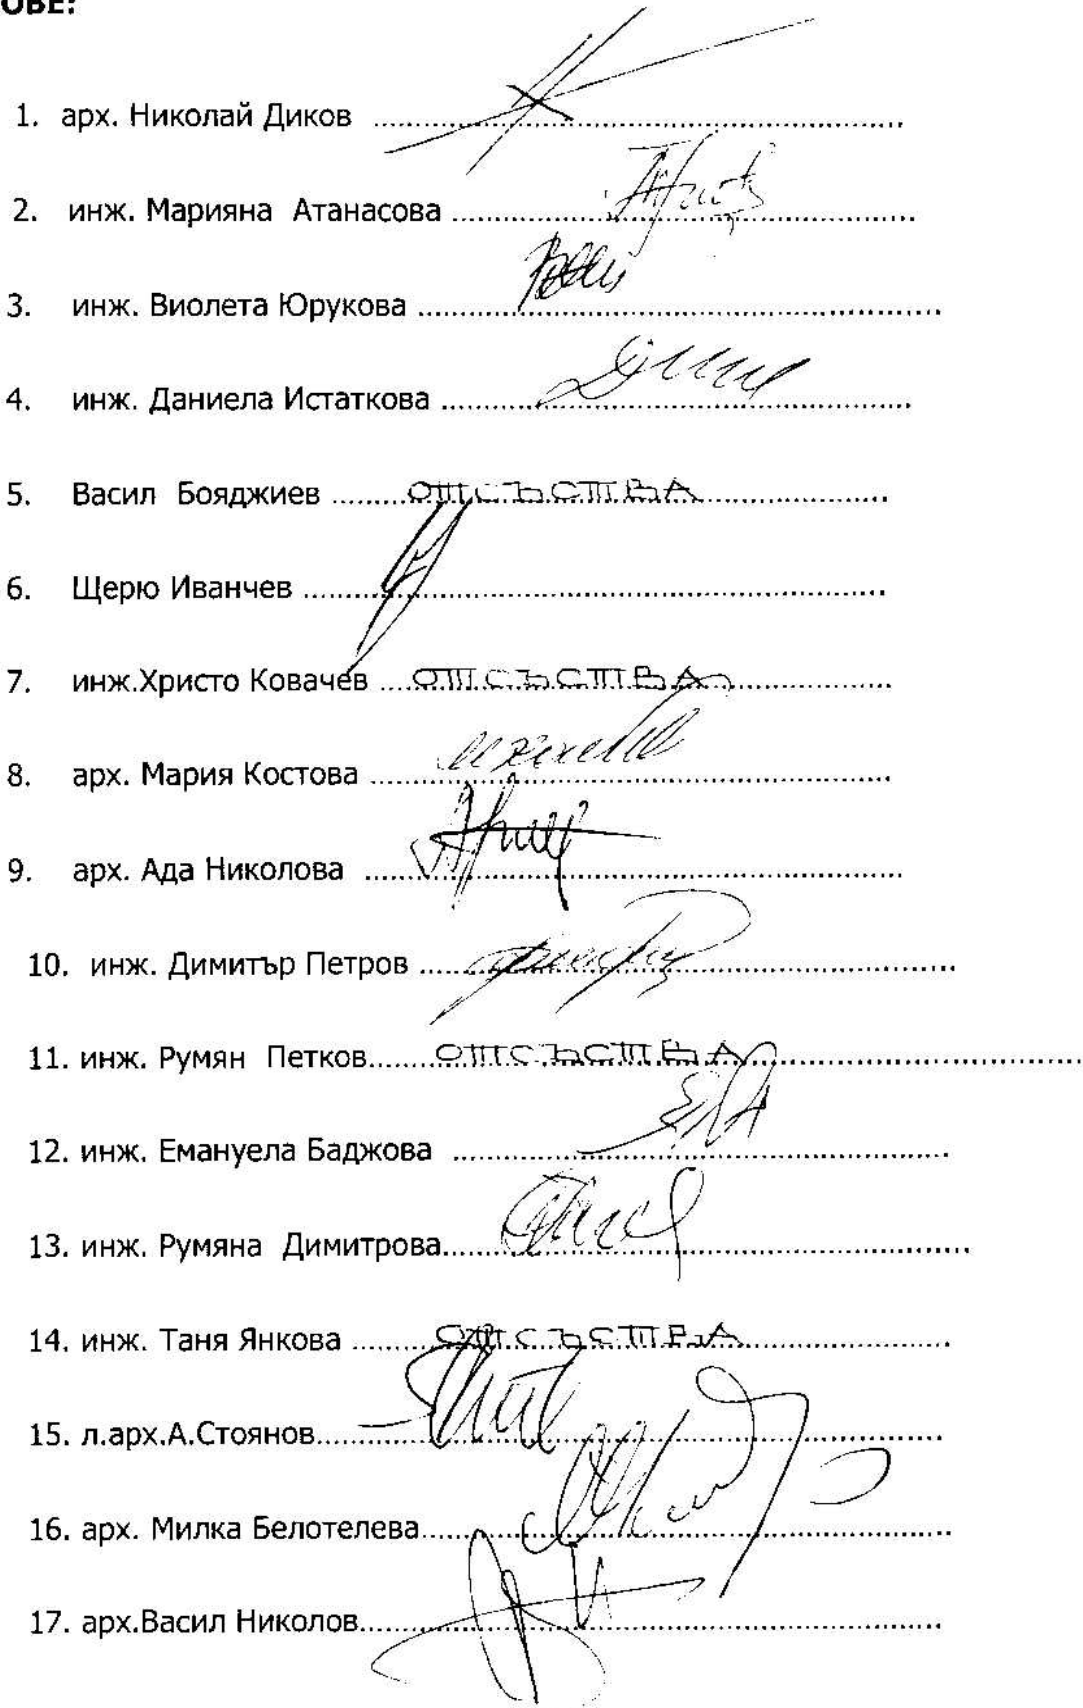 ОВЕ:
1. арх. Николай Диков ..........
2. инж. Марияна Атанасова ..........
3. инж. Виолета Юрукова ..........
4. инж. Даниела Истаткова ..........
5. Васил Бояджиев .......... отсъства ..........
6. Щерю Иванчев ..........
7. инж.Христо Ковачев .......... отсъства ..........
8. арх. Мария Костова ..........
9. арх. Ада Николова ..........
10. инж. Димитър Петров ..........
11. инж. Румян Петков.......... отсъства ..........
12. инж. Емануела Баджова ..........
13. инж. Румяна Димитрова..........
14. инж. Таня Янкова .......... отсъства ..........
15. л.арх.А.Стоянов..........
16. арх. Милка Белотелева..........
17. арх.Васил Николов..........